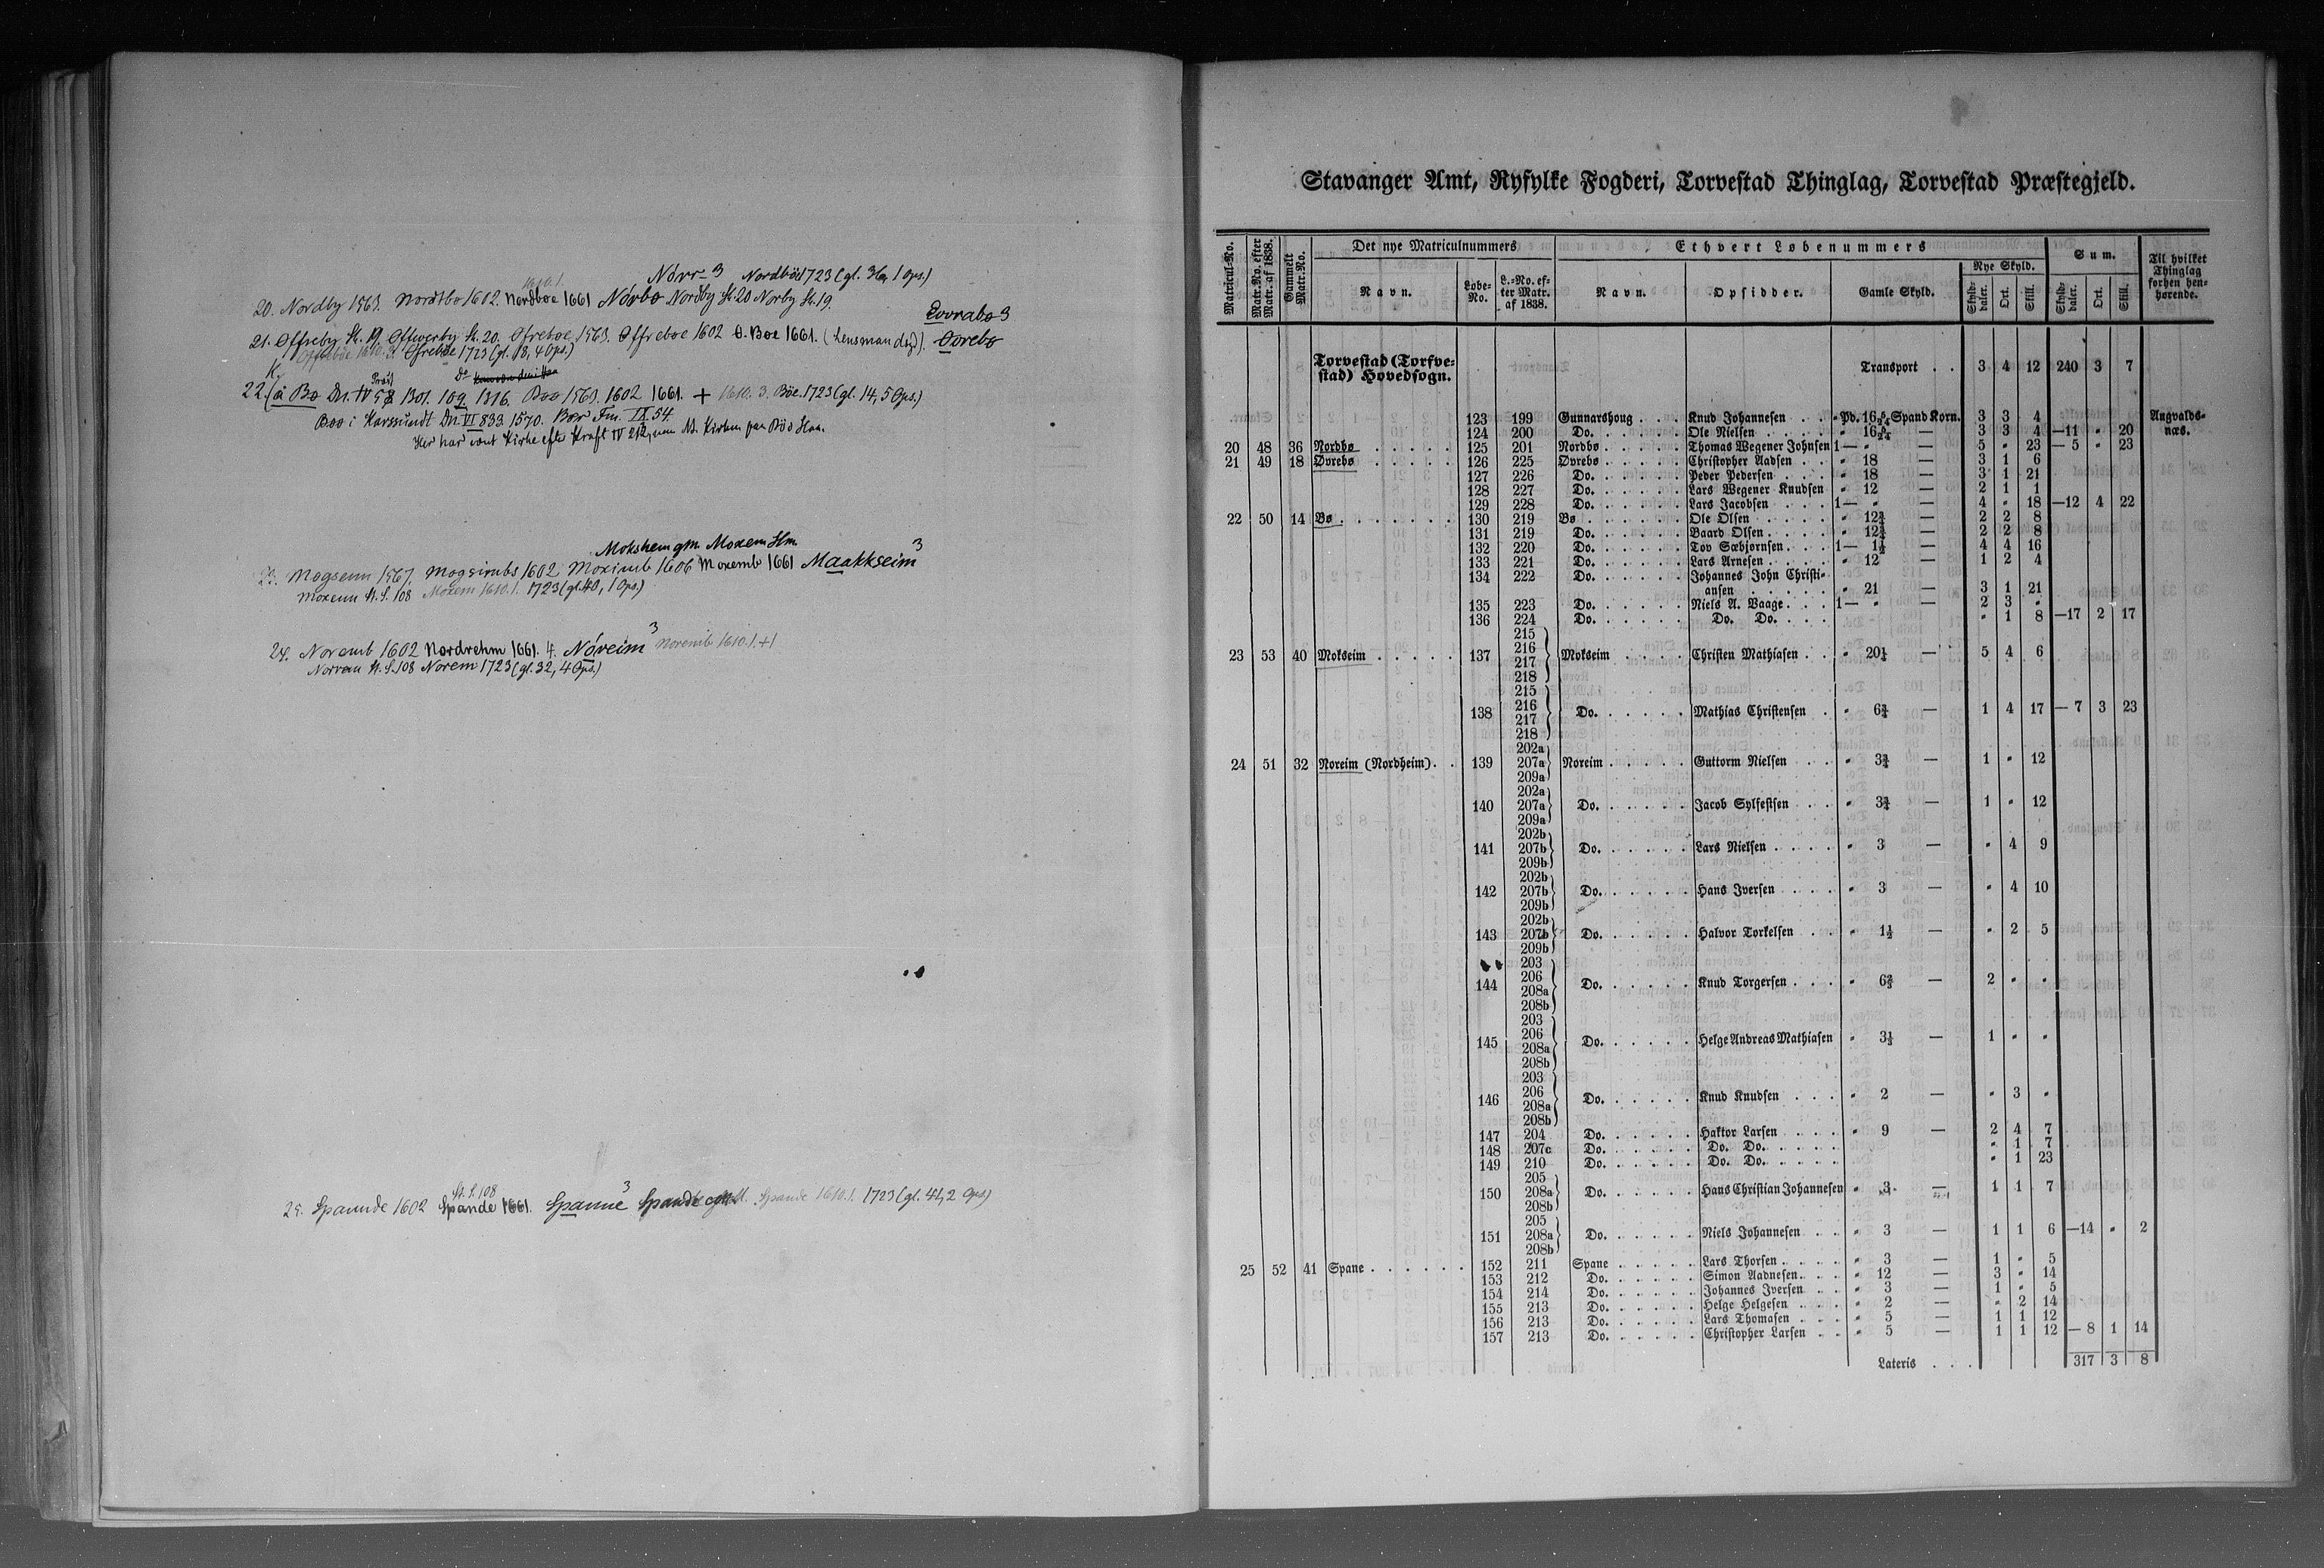 1610.1.
Nórr- 3 Nordböe 1723 (gl. 36, 1 Ops.)
20. Nordby 1563. Nordtbo 1602. Nordboe 1661 Nórbø Nordby St. 20 Norby St. 19.
Øvvrabø 3
21. Offreby St. 19, Offwerby St. 20. Ofreboe 1563. Offreboe 1602 O. Boe 1661. (Lensmandsg.). Øvrebø
Offreböe 1610. 3 Ofreböe 1723 (gl. 18, 4 Ops.)
K.
22. (a Bø Dn. IV 58 Bol. 109. 1316. Boo 1563. 1602 1661. + 1610. 3. Böe. 1723 (gl. 14, 5 Ops.)
Boo i Karmsundt Dn. VI 833. 1570. Bær Fm. IX 54.
Her har været Kirke efter Kraft IV 212,
Moksheim gm. Moxem Hm.
23. Mogsemn 1567. Mogsimbs 1602 Moximb 1606 Moxemb 1661 Maakkseim 3
Moxenn St. S. 108 Moxem 1610. 1. 1723 (gl. 40, 1 Ops.)
24. Noremb 1602 Nordrehm 1661. 4. Nóreim 3 Noremb 1610. 1. + 1
Norem St. S. 108 Norem 1723 (gl. 32, 4 Ops.)
St. S. 108
25. Spannde 1602 Spande 1661. Spanne 3 Spande Spande 1610. 1. 1723 (gl. 41, 2 Ops)
Stavanger Amt, Ryfylke Fogderi, Torvestad Thinglag, Torvestad Præstegjeld.
Matricul-No. Matr.-No. efter Matr. af 1838. Gammelt Matr.-No. Det nye Matriculnummers Ethvert Løbenummers Sum. Til hvilket Thinglag forhen henhørende.
Navn. Løbe-No. L.-No. efter Matr. af 1838. Navn. Opsidder. Gamle Skyld. Nye Skyld. Skylddaler. Ort. Skill. Skylddaler. Ort. Skill.
Torvestad (Torfvestad) Hovedsogn. Transport . . 3 4 12 240 3 7
123 199 Gunnarshoug . . . Knud Johannesen . . " Pd. 16 5/24 Spand Korn. 3 3 4 Augvaldsnæs.
124 200 Do. . . . . . Ole Nielsen . . . . " 16 5/24 — 3 3 4 —11 " 20
20 48 36 Nordbø . . . . . 125 201 Nordbø . . . . . Thomas Wegener Johnsen 1— " — 5 " 23 — 5 " 23
21 49 18 Øvrebø . . . . . 126 225 Øvrebø . . . . . Christopher Aadsen . . " 18 — 3 1 6
127 226 Do. . . . . . Peder Pedersen . . . " 18 — 3 1 21
128 227 Do. . . . . . Lars Wegener Knudsen " 12 — 2 1 1
129 228 Do. . . . . . Lars Jacobsen . . . 1— " — 4 " 18 —12 4 22
22 50 14 Bø . . . . . . . 130 219 Bø . . . . . . . Ole Olsen . . . . . " 12¾ — 2 2 8
131 219 Do. . . . . . Baard Olsen . . . . " 12¾ — 2 2 8
132 220 Do. . . . . . Tov Sæbjørnsen . . . 1— 1½ — 4 4 16
133 221 Do. . . . . . Lars Arnesen . . . . " 12 — 1 2 4
134 222 Do. . . . . . Johannes John Christiansen . . . . . " 21 — 3 1 21
135 223 Do. . . . . . Niels A. Vaage . . . 1— " — 2 3 "
136 224 Do. . . . . . Do. Do. . . . " 1 8 —17 2 17
23 53 40 Mokseim . . . . . 137 215 216 217 218 Mokseim . . . . . Christen Mathiasen . . " 20¼ — 5 4 6
138 215 216 217 218 Do. . . . . . Mathias Christensen . " 6¾ — 1 4 17 — 7 3 23
24 51 32 Noreim (Nordheim). . 139 202a 207a 209a Noreim . . . . . Guttorm Nielsen . . . " 3¾ — 1 " 12
140 202a 207a 209a Do. . . . . . Jacob Sylfestsen . . " 3¾ — 1 " 12
141 202b 207b 209b Do. . . . . . Lars Nielsen . . . . " 3 — " 4 9
142 202b 207b 209b Do. . . . . . Hans Iversen . . . . " 3 — " 4 10
143 202b 207b 209b Do. . . . . . Halvor Torkelsen . . " 1½ — " 2 5
144 203 206 208a 208b Do. . . . . . Knud Torgersen . . . " 6⅔ — 2 " "
145 203 206 208a 208b Do. . . . . . Helge Andreas Mathiasen " 3⅓ — 1 " "
146 203 206 208a 208b Do. . . . . . Knud Knudsen . . . " 2 — " 3 "
147 204 Do. . . . . . Haktor Larsen . . . . " 9 — 2 4 7
148 207c Do. . . . . . Do. Do. . . . . " 1 7
149 210 Do. . . . . . Do. Do. . . . . " 1 23
150 205 208a 208b Do. . . . . . Hans Christian Johannesen " 3 — 1 1 7
151 205 208a 208b Do. . . . . . Niels Johannesen . . " 3 — 1 1 6 —14 " 2
25 52 41 Spane . . . . . . 152 211 Spane . . . . . Lars Thorsen . . . . " 3 — 1 " 5
153 212 Do. . . . . . Simon Aadnesen . . . " 12 — 3 " 14
154 214 Do. . . . . . Johannes Iversen . . " 3 — 1 " 5
155 213 Do. . . . . . Helge Helgesen . . . " 2 — " 2 14
156 213 Do. . . . . . Lars Thomasen . . . " 5 — 1 1 12
157 213 Do. . . . . . Christopher Larsen . . " 5 — 1 1 12 — 8 1 14
Lateris . . . 317 3 8